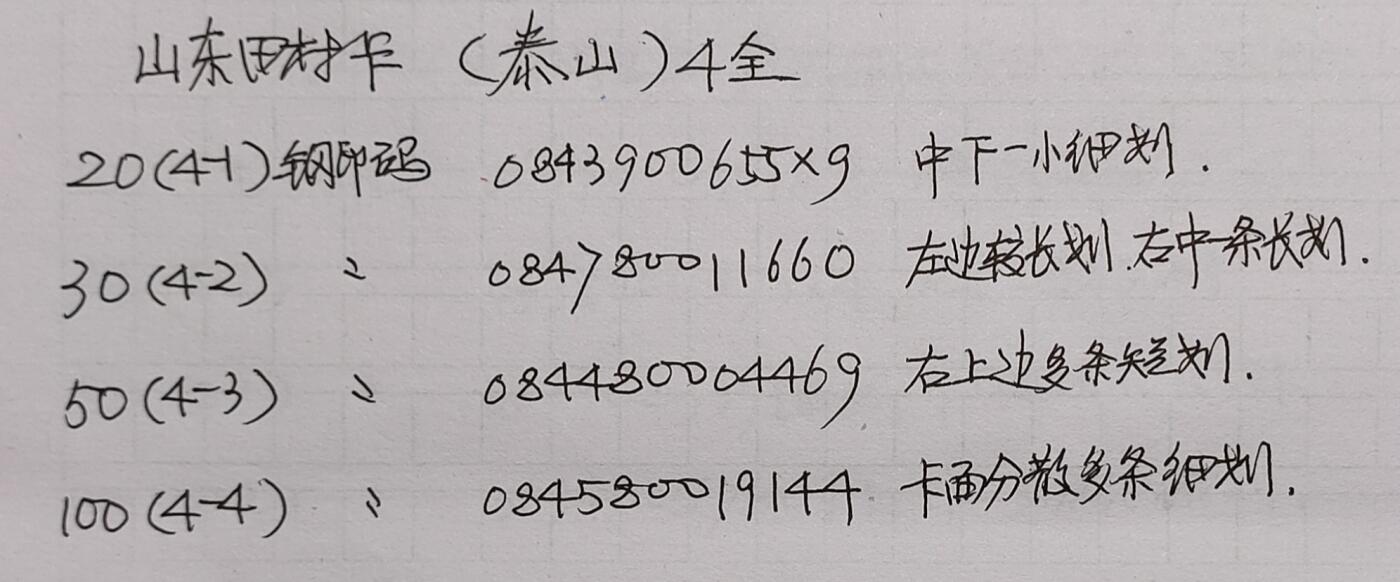 山东田村卡（泰山）4全
20(4-1)钢印码 0843900655×9 中下一小细划.
30(4-2) 〃 084780011660 左边较长划.右中一条长划.
50(4-3) 〃 084480004469 右上边多条短划.
100(4-4) 〃 084580019144 卡面分散多条细划.